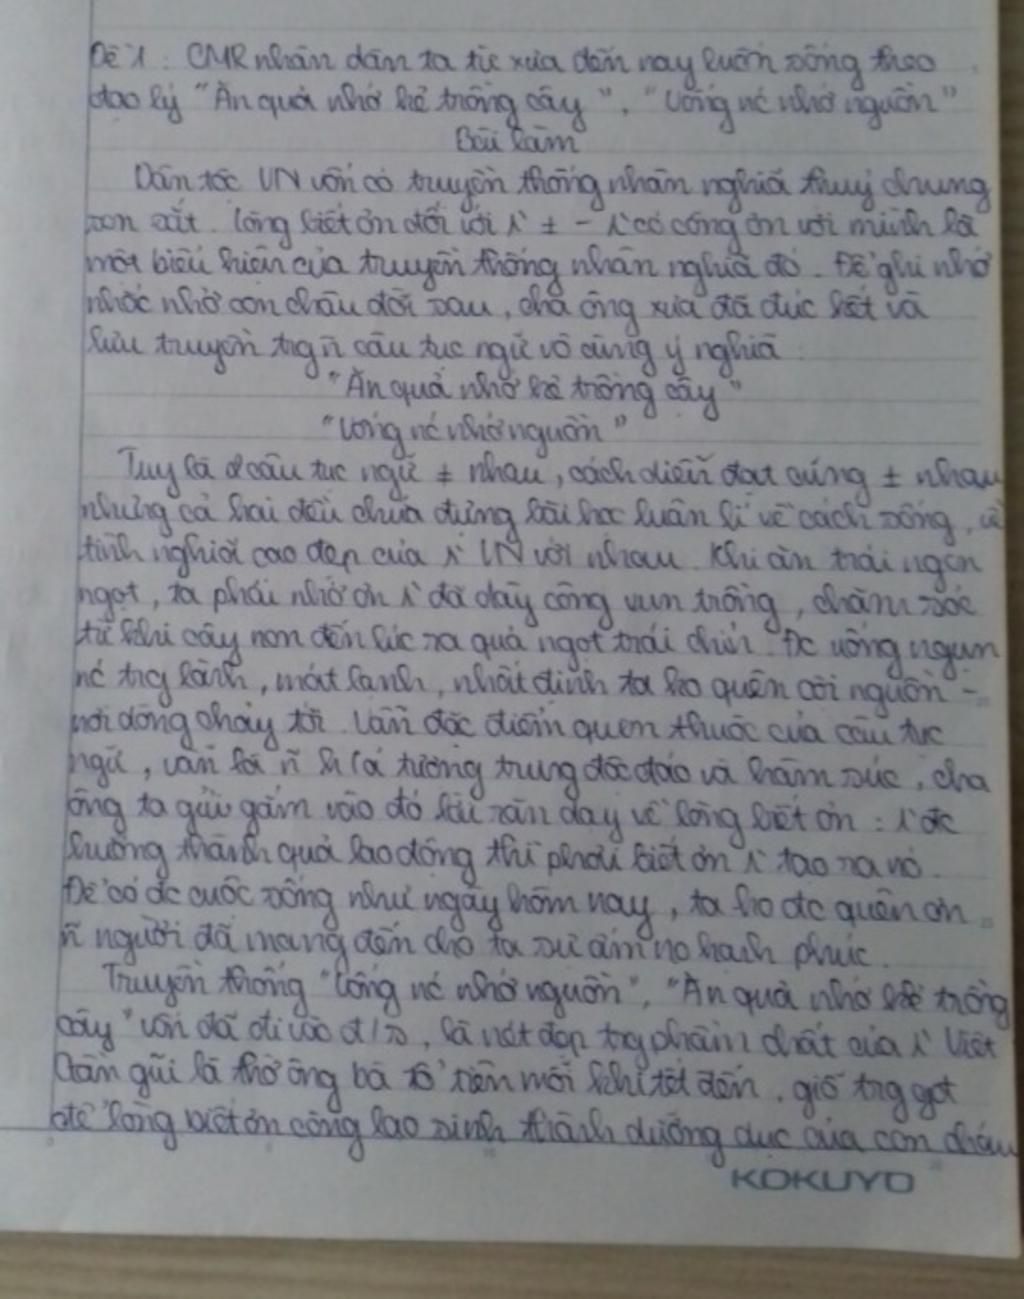 Đề 1 : CMR nhân dân ta từ xưa đến nay luôn sống theo
đạo lý "Ăn quả nhớ kẻ trồng cây", "Uống nc nhớ nguồn"
Bài làm
Dân tộc VN vốn có truyền thống nhân nghĩa thuỷ chung
son sắt. Lòng biết ơn đối với có công ơn với mình là
một biểu hiện của truyền thống nhân nghĩa đó. Để ghi nhớ
nhắc nhở con cháu đời sau, cha ông xưa đã đúc kết và
lưu truyền trg ~ câu tục ngữ vô cùng ý nghĩa :
"Ăn quả nhớ kẻ trồng cây"
"Uống nc nhớ nguồn"
Tuy là 2 câu tục ngữ ≠ nhau, cách diễn đạt cũng ≠ nhau
nhưng cả hai đều chứa đựng bài học luân lí về cách sống,
tình nghĩa cao đẹp của VN với nhau. Khi ăn trái ngon
ngọt, ta phải nhớ ơn đã dày công vun trồng, chăm sóc
từ khi cây non đến lúc ra quả ngọt trái chín. Đc uống ngụm
nc trg lành, mát lạnh, nhất định ta ko quên cội nguồn -
nơi dòng chảy tới. Vẫn đặc điểm quen thuộc của câu tục
ngữ, vẫn là tượng trưng độc đáo và hàm súc, cha
ông ta gửi gắm vào đó lời răn dạy về lòng biết ơn : đc
hưởng thành quả lao động thì phải biết ơn tạo ra nó.
Để có đc cuộc sống như ngày hôm nay, ta ko đc quên ơn
người đã mang đến cho ta sự ấm no hạnh phúc.
Truyền thống "Uống nc nhớ nguồn", "Ăn quả nhớ kẻ trồng
cây" vốn đã đi vào đ/s, là nét đẹp trg phẩm chất của Việt
Gần gũi là thờ ông bà tổ tiên mỗi khi tết đến, giỗ trg
để lòng biết ơn công lao sinh thành dưỡng dục của con cháu
KOKUYO